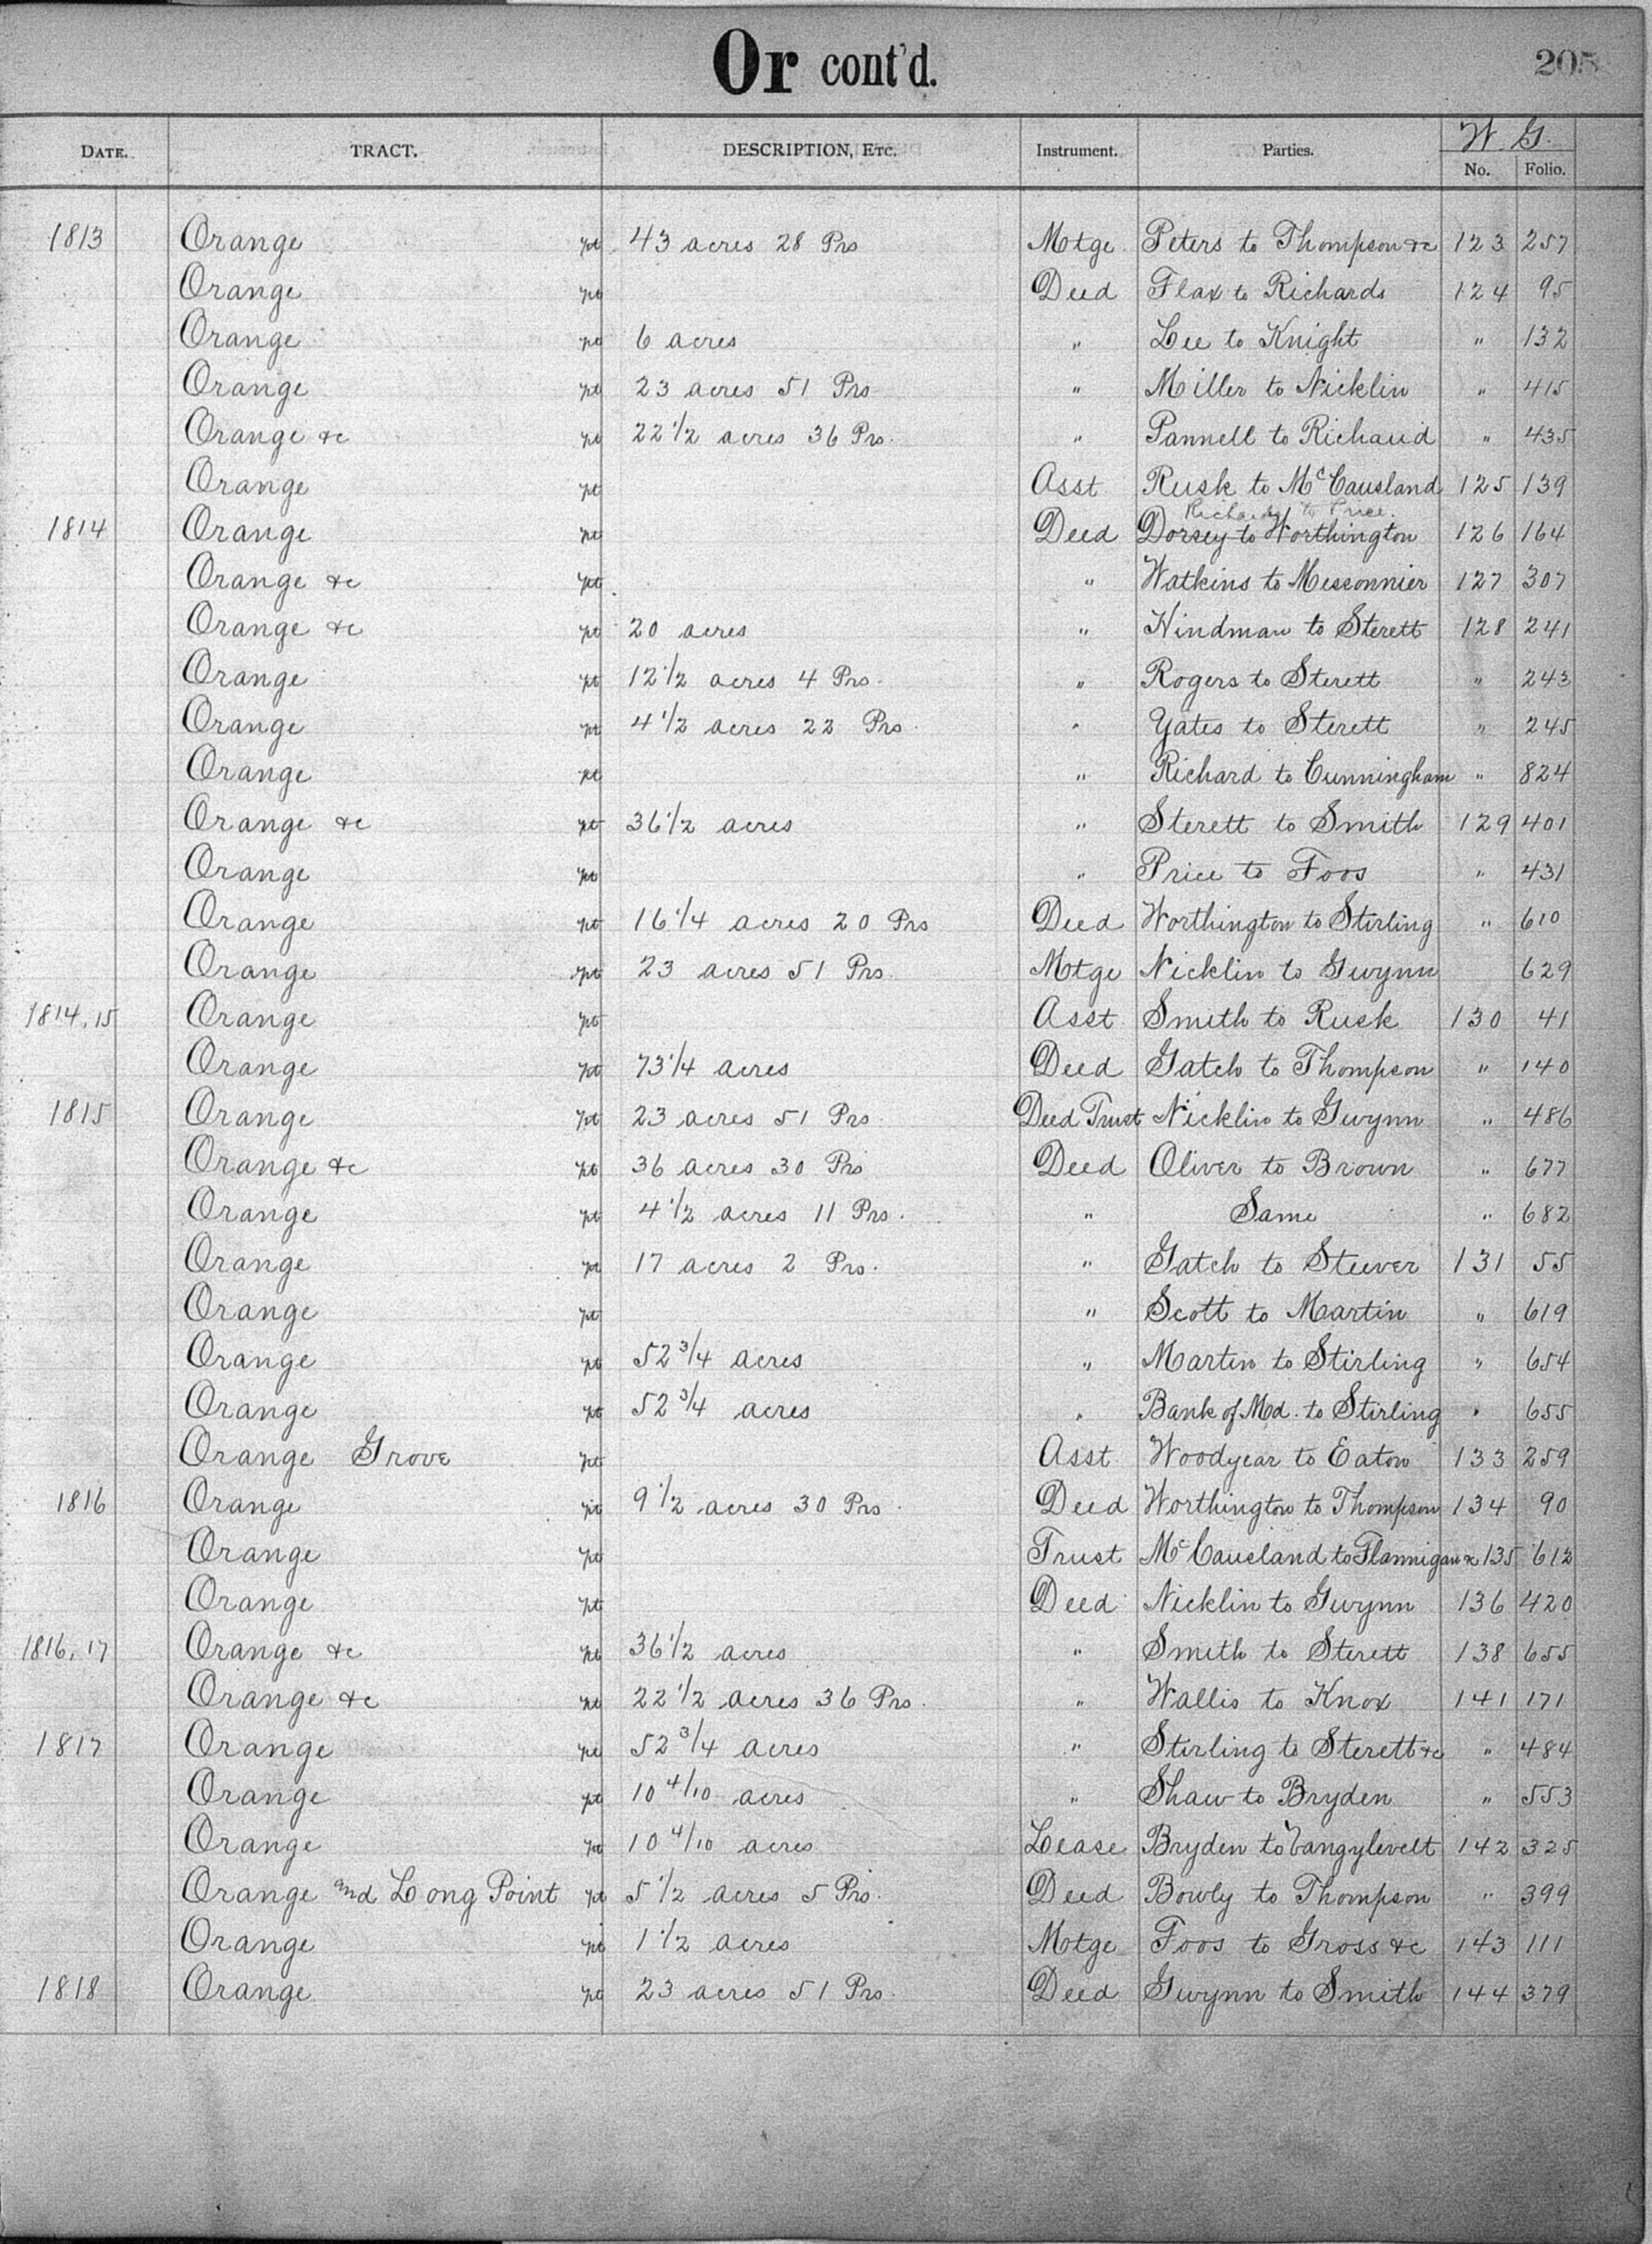 Or cont'd.
205
W. G.
DATE. TRACT. DESCRIPTION, ETC. Instrument. Parties. No. Folio.
1813 Orange pt 43 acres 28 Prs Motge Peters to Thompson &c 123 257
Orange pt Deed Flax to Richards 124 95
Orange pt 6 acres " Lee to Knight " 132
Orange pt 23 acres 51 Prs " Miller to Nicklin " 415
Orange &c pt 22 1/2 acres 36 Prs. " Pannell to Richaud " 435
Orange pt Asst Rusk to McCausland 125 139
Richards to Price.
1814 Orange pt Deed Dorsey to Worthington 126 164
Orange &c pt " Watkins to Messonnier 127 307
Orange &c pt 20 acres " Hindman to Sterett 128 241
Orange pt 12 1/2 acres 4 Prs. " Rogers to Sterett " 243
Orange pt 4 1/2 acres 22 Prs. " Yates to Sterett " 245
Orange pt " Richard to Cunningham " 824
Orange &c pt 36 1/2 acres " Sterett to Smith 129 401
Orange pt " Price to Foos " 431
Orange pt 16 1/4 acres 20 Prs Deed Worthington to Stirling " 610
Orange pt 23 acres 51 Prs. Motge Nicklin to Gwynn 629
1814,15 Orange pt Asst Smith to Rusk 130 41
Orange pt 73 1/4 acres Deed Gatch to Thompson " 140
1815 Orange pt 23 acres 51 Prs. Deed Trust Nicklin to Gwynn " 486
Orange &c pt 36 acres 30 Prs Deed Oliver to Brown " 677
Orange pt 4 1/2 acres 11 Prs. " Same " 682
Orange pt 17 acres 2 Prs. " Gatch to Steever 131 55
Orange pt " Scott to Martin " 619
Orange pt 52 3/4 acres " Martin to Stirling " 654
Orange pt 52 3/4 acres " Bank of Md. to Stirling " 655
Orange Grove pt Asst Woodyear to Eaton 133 259
1816 Orange pt 9 1/2 acres 30 Prs. Deed Worthington to Thompson 134 90
Orange pt Trust McCausland to Flannigan & 135 612
Orange pt Deed Nicklin to Gwynn 136 420
1816,17 Orange &c pt 36 1/2 acres " Smith to Sterett 138 655
Orange &c pt 22 1/2 acres 36 Prs. " Wallis to Knox 141 171
1817 Orange pt 52 3/4 acres " Stirling to Sterett &c " 484
Orange pt 10 4/10 acres " Shaw to Bryden " 553
Orange pt 10 4/10 acres Lease Bryden to Vangylevelt 142 325
Orange and Long Point pt 5 1/2 acres 5 Prs. Deed Bowly to Thompson " 399
Orange pt 1 1/2 acres Motge Foos to Gross &c 143 111
1818 Orange pt 23 acres 51 Prs. Deed Gwynn to Smith 144 379